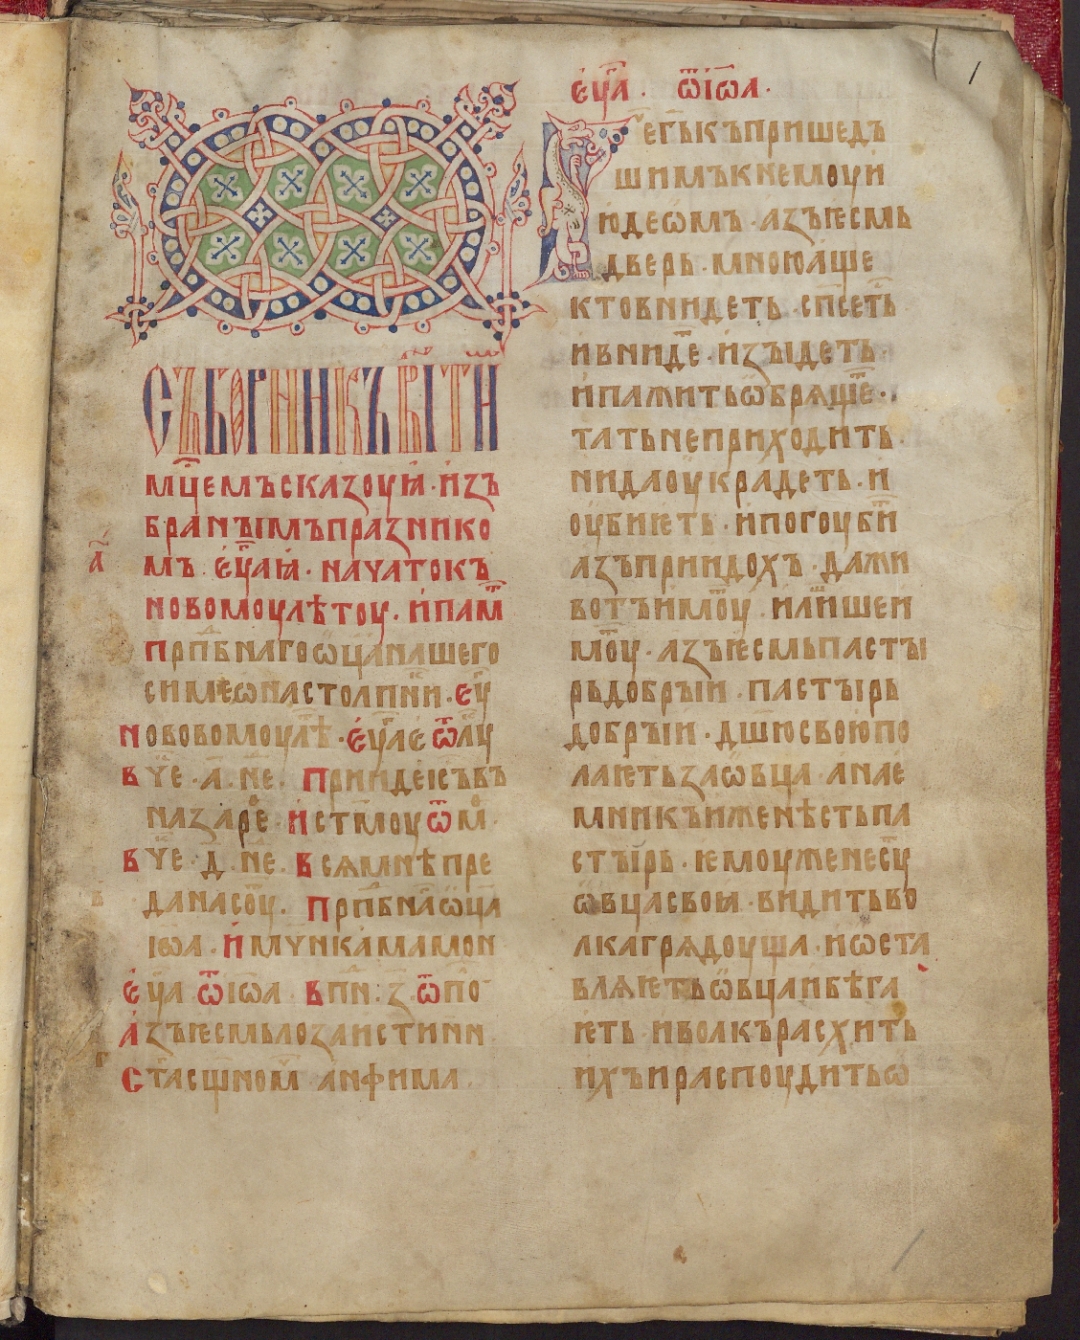 СЪБОРНИКЪ ВІТИ
мц҃емъсказоуꙗ · изъ
браныимъпразнико
мъ · еѵ҃аиꙗ · начатокъ
новомоулѣтоу · ипам҃
прпб҃нагоѿц҃анашего
симеѡнастолпн҃и · еѵ҃
нововомоулѣ҃ · еѵ҃ае ѿлу
в҃ че · а҃ · не · прииде іс҃ъвъ
назаре · и ст҃моу ѿ м
в҃ че · д҃ · не · всямнѣпре
данасоу҃ · прпб҃наѡц҃а
іѡ҃а · и мч҃нкамамон
еѵ҃а ѿ іѡ҃а впн҃ : з҃ ѿ по
азъѥсмьлозаистинн
стасщ҃ном анфима
еѵ҃а · ѿ іѡ҃а ·
Рег҃ькъпришедъ
шимъкнемоуи
июдеѡмъ · азъѥсмь
дверь · мноюаще
ктовнидеть · сп҃сеть
ивниде · изъідеть
ипажитьѡбряще ·
татьнеприходить ·
нидаоукрадеть · и
оубиѥть · ипогоуби
азъприидохъ · дажи
вотъимоу҃ · илишеи
моу҃ · азъѥсмьпастъі
рьдобръіи · пастъірь
добръіи · дш҃юсвоюпо
лагѥтьзаѡвца · анае
мникъиженѣстьпа
стъірь · ѥмоуженесу҃
ѡвцасвоꙗ · видитьво
лкагрядоуща · иѡста
вляѥтьѡвцаибѣга
ѥть · иволкърасхить
ихъираспоудитьѡ
1